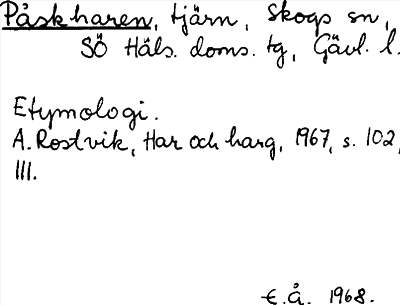 Påskharen, tjärn, Skogs sn,
SÖ Häls. doms. tg, Gävl. l.
Etymologi.
A. Rostvik, Har och harg, 1967, s. 102,
111.
E.Å. 1968.